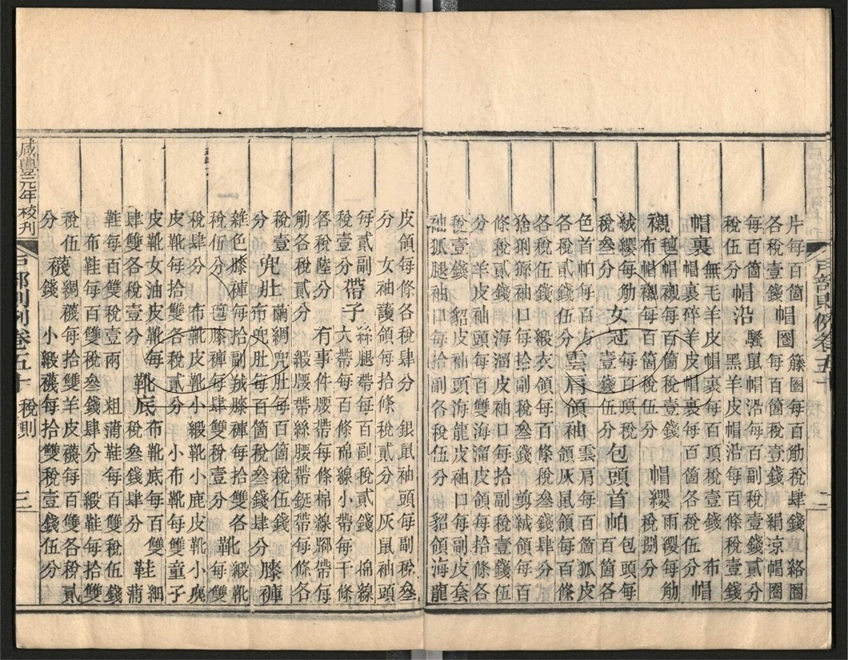 片每百箇 帽圈 籐圈每百觔稅肆錢 絡圈
各稅壹錢 每百箇稅壹錢 絹凉帽圈
每百箇 帽沿 騷鼠帽沿每百副稅壹錢貳分
稅伍分 黑羊皮帽沿每百條稅壹錢
帽裏 無毛羊皮帽裏每百項稅壹錢 布帽
帽裏碎羊皮帽裏每百箇各稅伍分
襯 氊帽襯每百箇稅壹錢 帽纓 雨纓每觔
布帽襯每百箇稅伍分 稅捌分
絨纓每觔 女冠 每百頂稅 包頭首帕 包頭每
稅叁分 壹錢伍分 百箇各
色首帕每百方 雲肩領袖 雲肩每百箇狐皮
各稅貳錢 領灰鼠領每百條
各稅伍分 緞衣領每百條稅叁錢肆分
猞猁猻袖口每拾副稅叁錢 剪絨領每百
條稅貳錢 海溜皮袖口每拾副稅貳錢伍
分 羊皮袖頭每百雙海溜皮領每拾條各
稅壹錢 貂皮袖頭海龍皮袖口每副皮套
袖狐腿袖口每拾副各稅伍分 貂領海龍
皮領每條各稅肆分 銀鼠袖頭每副稅叁
分 女袖護領每拾條稅貳分 灰鼠袖頭
每貳副 帶子 絲腿帶每百副稅貳錢 棉線
稅壹分 大帶每百條棉線小帶每千條
各稅陸分 有事件腰帶每條棉線腳帶每
觔各稅貳分 緞腰帶絲腰帶鋌帶每條各
稅壹 兜肚 繭綢兜肚每百箇稅伍錢
分 布兜肚每百箇稅叁錢肆分 膝褲
雜色膝褲每拾副絨膝褲每拾雙各 靴 緞靴
稅伍分 膝褲每肆雙稅壹分 每雙
稅肆分 布靴皮靴小緞靴小鹿皮靴小麂
皮靴每拾雙各稅貳分 小布靴每雙童子
皮靴女油皮靴每 靴底 布靴底每百雙 鞋 細
肆雙各稅壹分 稅叁錢肆分 蒲
鞋每百雙稅壹兩 粗蒲鞋每百雙稅伍錢
布鞋每百雙稅叁錢肆分 緞鞋每拾雙
稅伍 襪 綢襪每拾雙羊皮襪每百雙各稅貳
分 錢 小緞襪每拾雙稅壹錢伍分
咸豐元年校刊
戶部則例卷五十 稅則 三